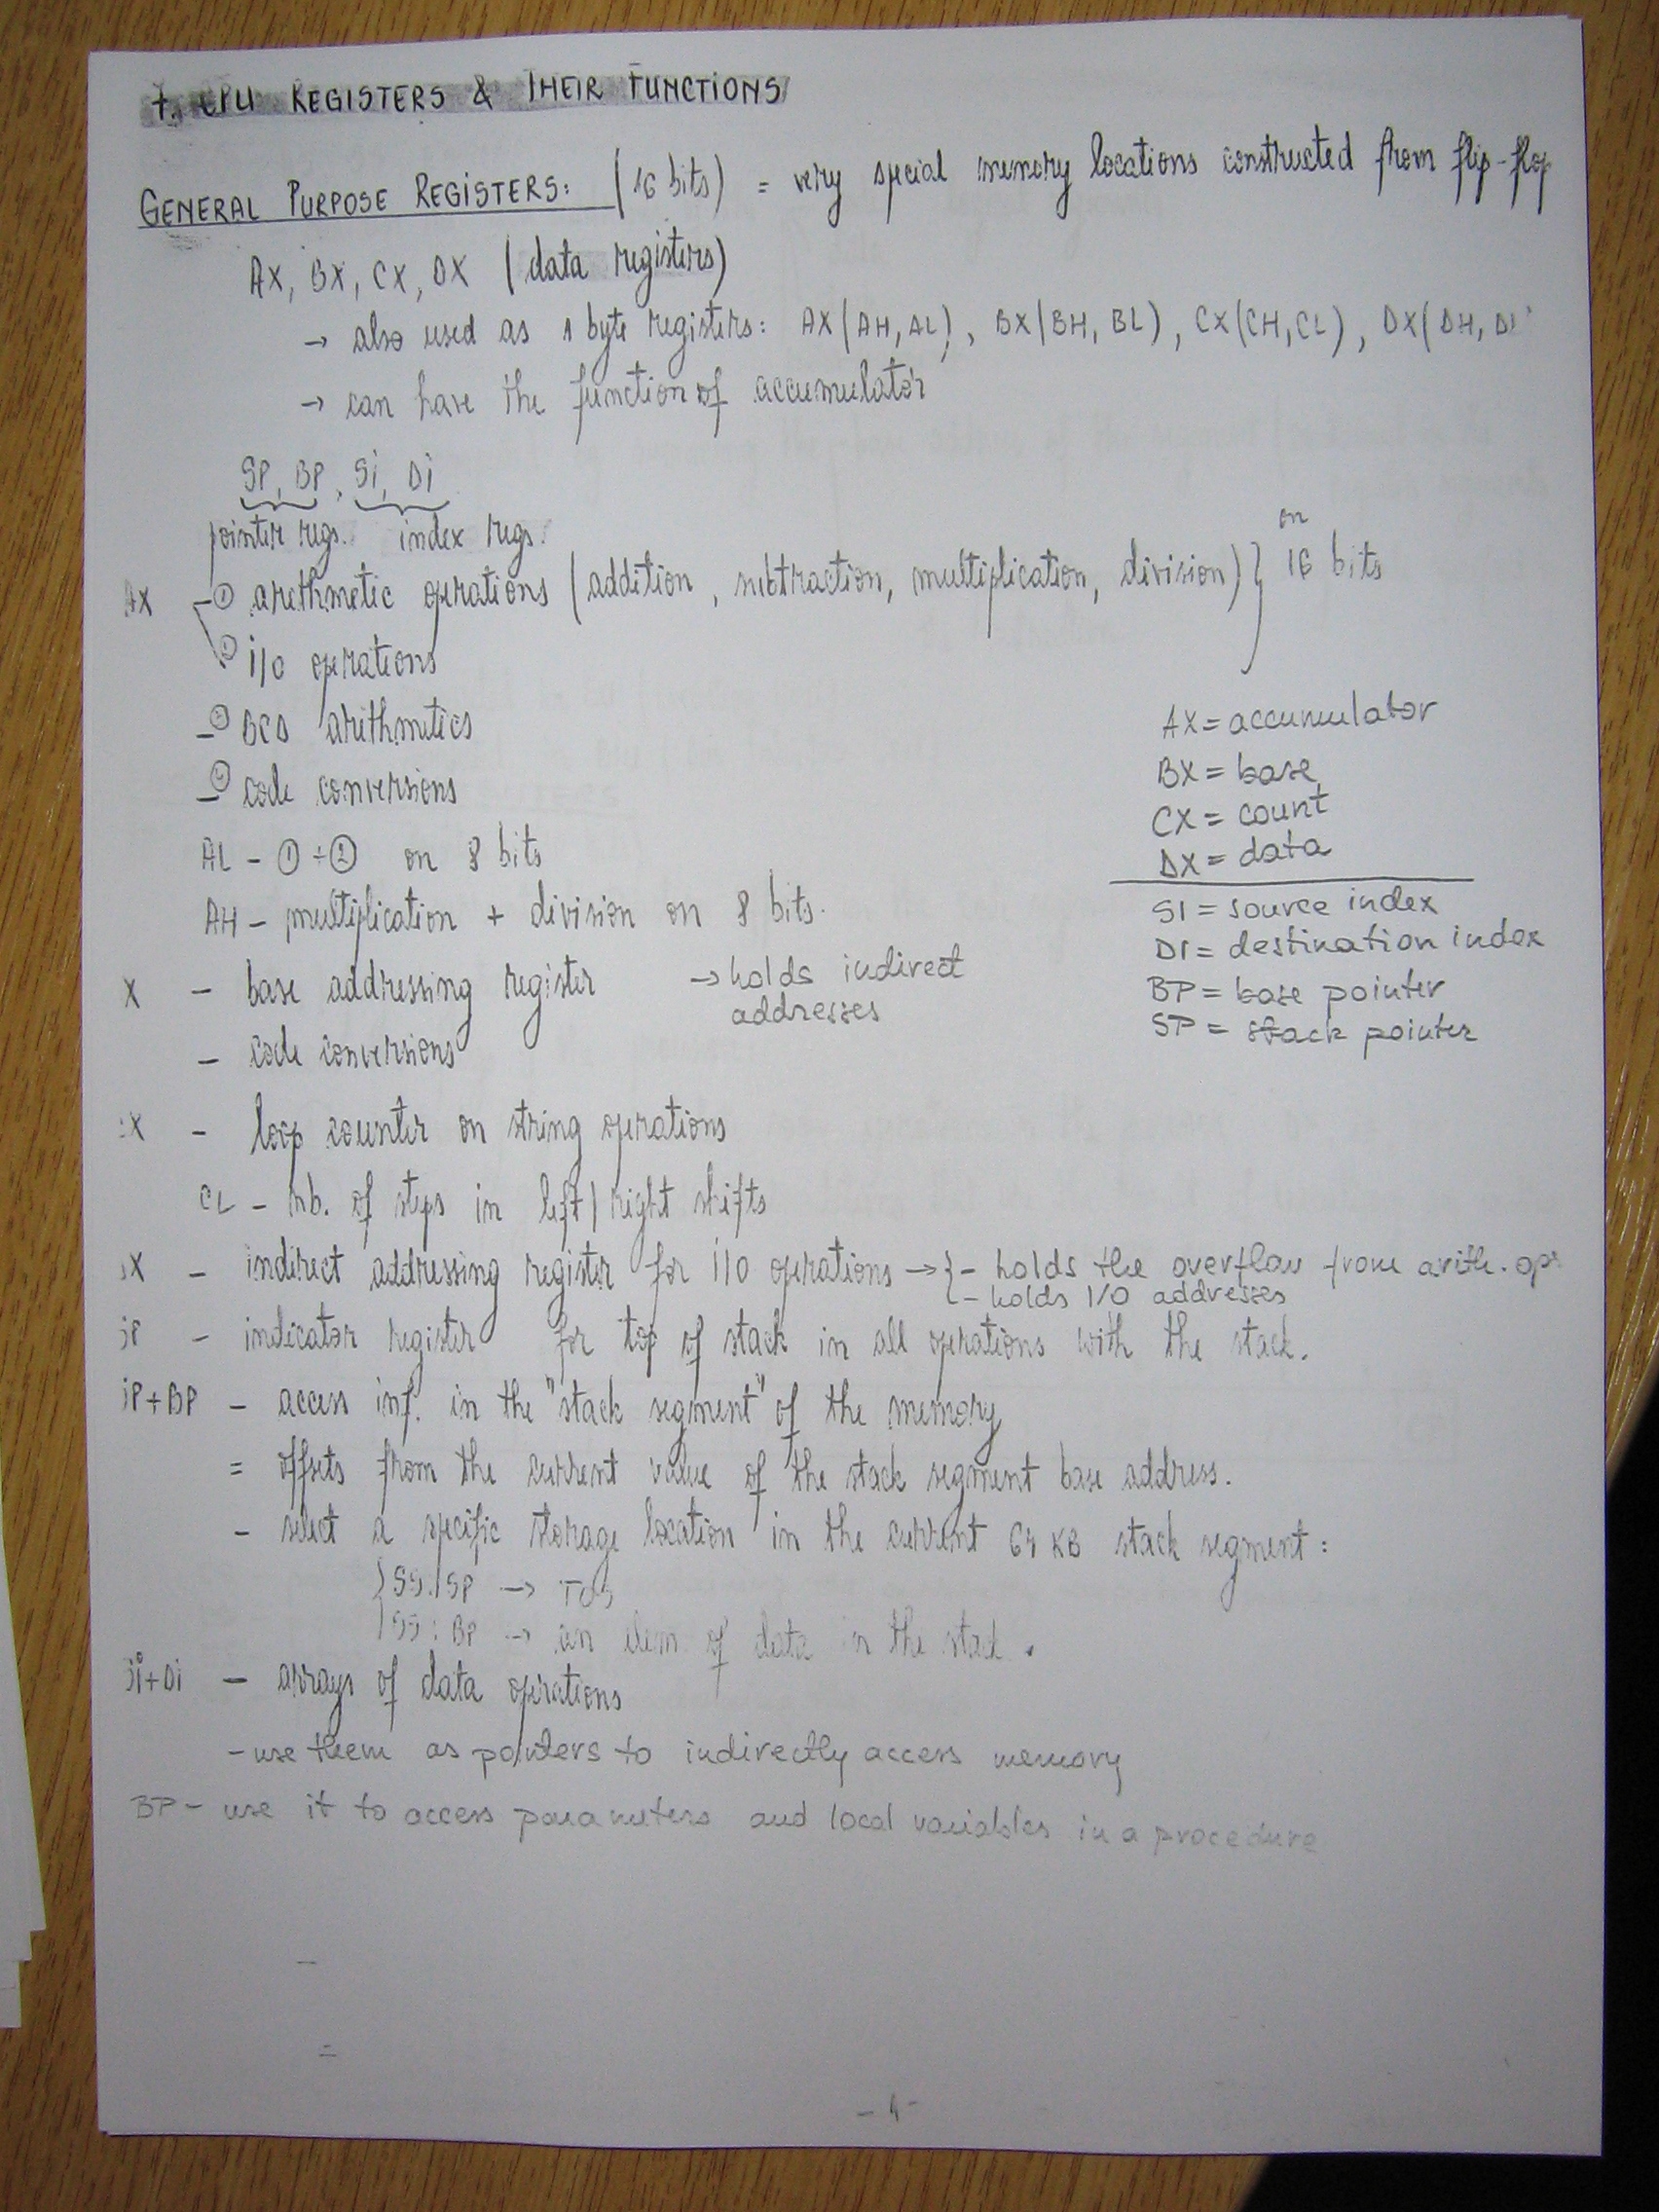 7. CPU REGISTERS & THEIR FUNCTIONS
GENERAL PURPOSE REGISTERS: (16 bits) = very special memory locations constructed from flip-flop
AX, BX, CX, DX (data registers)
→ also used as 1 byte registers: AX(AH, AL), BX(BH, BL), CX(CH,CL), DX(DH, DL
→ can have the function of accumulator
SP, BP, Si, Di
pointer regs. index regs.
AX - ① arithmetic operations (addition, subtraction, multiplication, division) } on 16 bits
i/o operations
- BCD arithmetics
- code conversions
AX = accumulator
BX = base
CX = count
DX = data
SI = source index
DI = destination index
BP = base pointer
SP = stack pointer
AL - ① ÷ ② on 8 bits
AH - multiplication + division on 8 bits.
X - base addressing register → holds indirect addresses
- code conversions
X - loop counter on string operations
CL - nb. of steps in left/right shifts
X - indirect addressing register for i/o operations → { - holds the overflow from arith. op
- holds I/O addresses
P - indicator register for top of stack in all operations with the stack.
P+BP - access inf. in the "stack segment" of the memory
= offsets from the current value of the stack segment base address.
- select a specific storage location in the current 64 KB stack segment:
{ SS:SP → TOS
SS:BP → an elem of data in the stack.
i+Di - arrays of data operations
- use them as pointers to indirectly access memory
BP - use it to access parameters and local variables in a procedure
- 4 -